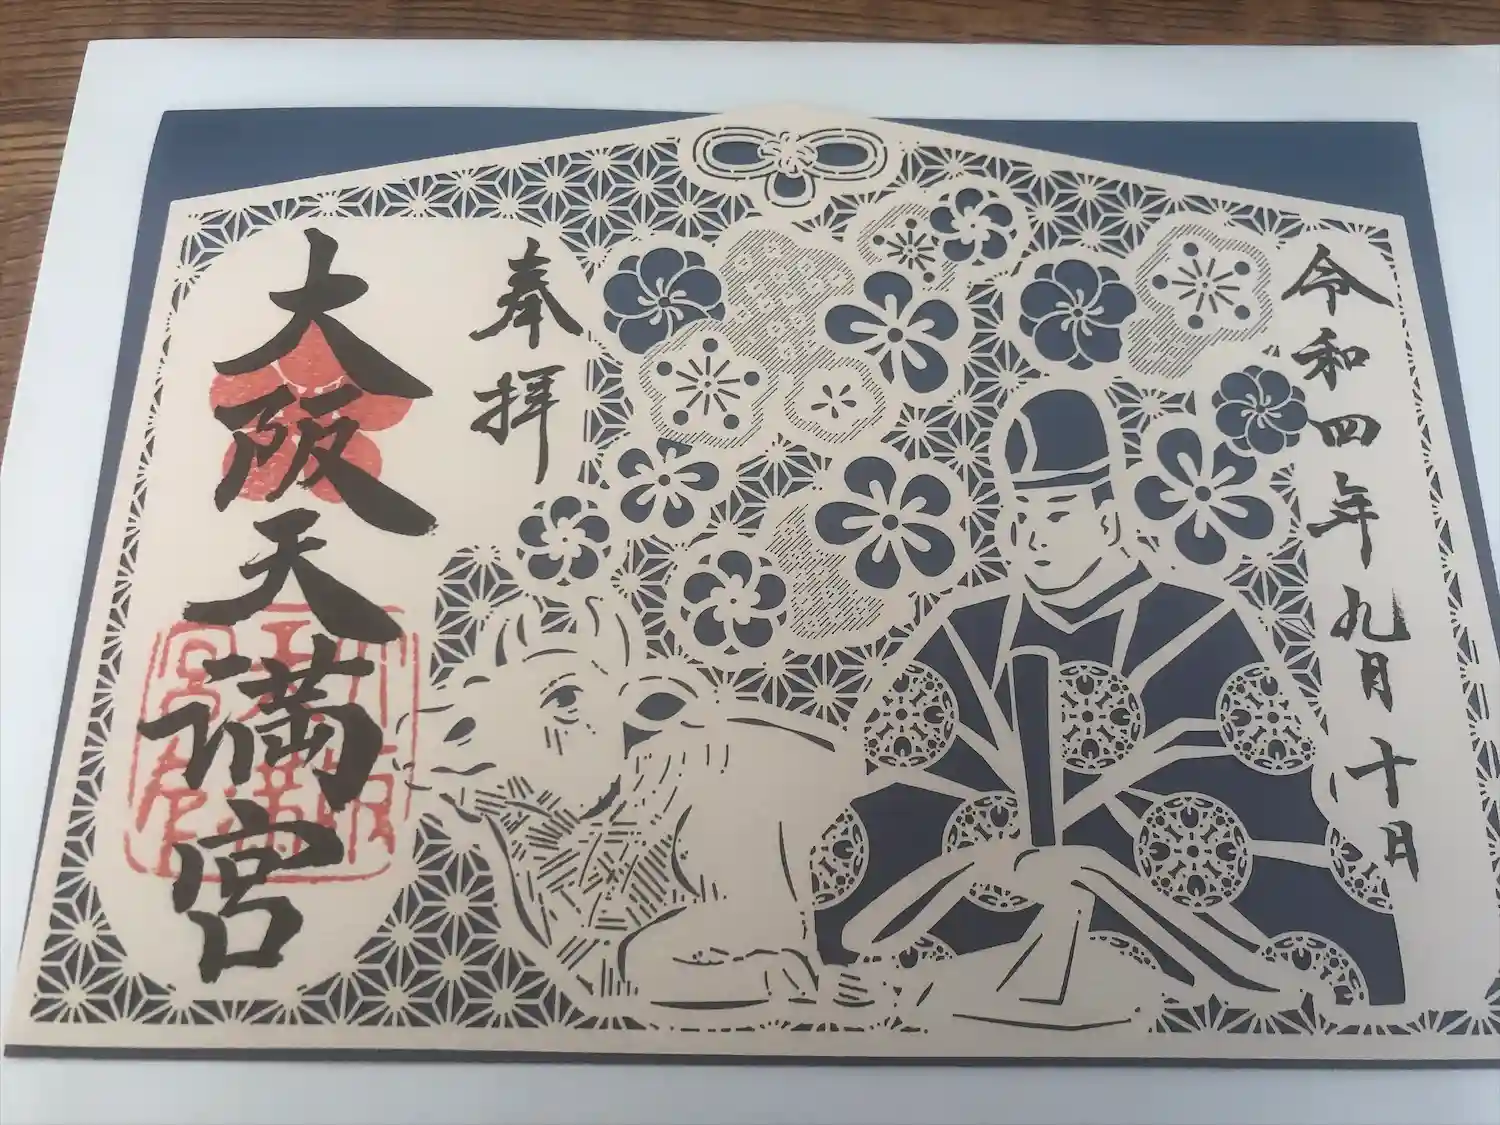 令和四年九月十日
奉拝
大阪天満宮